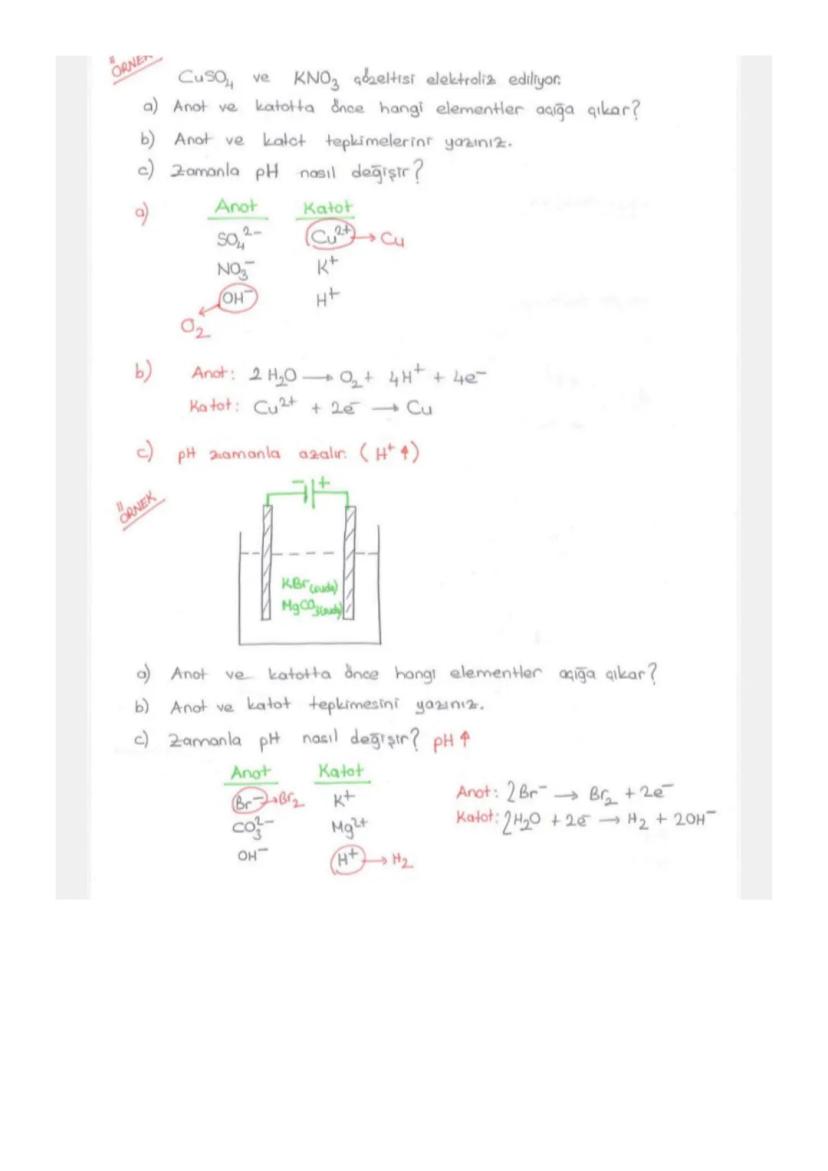 ÖRNEK
CuSO₄ ve KNO₃ çözeltisi elektroliz ediliyor.
a) Anot ve katotta önce hangi elementler açığa çıkar?
b) Anot ve katot tepkimelerini yazınız.
c) Zamanla pH nasıl değişir?
a) Anot Katot
SO₄²⁻ Cu²⁺ → Cu
NO₃⁻ K⁺
OH⁻ H⁺
O₂
b) Anot: 2H₂O → O₂ + 4H⁺ + 4e⁻
Katot: Cu²⁺ + 2e⁻ → Cu
c) pH zamanla azalır. (H⁺ ↑)
ÖRNEK
- +
KBr(suda)
MgCO₃(suda)
a) Anot ve katotta önce hangi elementler açığa çıkar?
b) Anot ve katot tepkimesini yazınız.
c) Zamanla pH nasıl değişir? pH ↑
Anot Katot
Br⁻ → Br₂ K⁺
CO₃²⁻ Mg²⁺
OH⁻ H⁺ → H₂
Anot: 2Br⁻ → Br₂ + 2e⁻
Katot: 2H₂O + 2e⁻ → H₂ + 2OH⁻